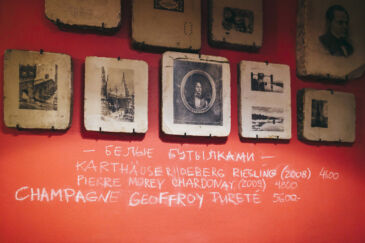 — БЕЛЫЕ БУТЫЛКАМИ —
KARTHÄUSERHOFBERG RIESLING (2008) 4600
PIERRE MOREY CHARDONAY (2009) 4800
CHAMPAGNE GEOFFROY PURETÉ 5600-